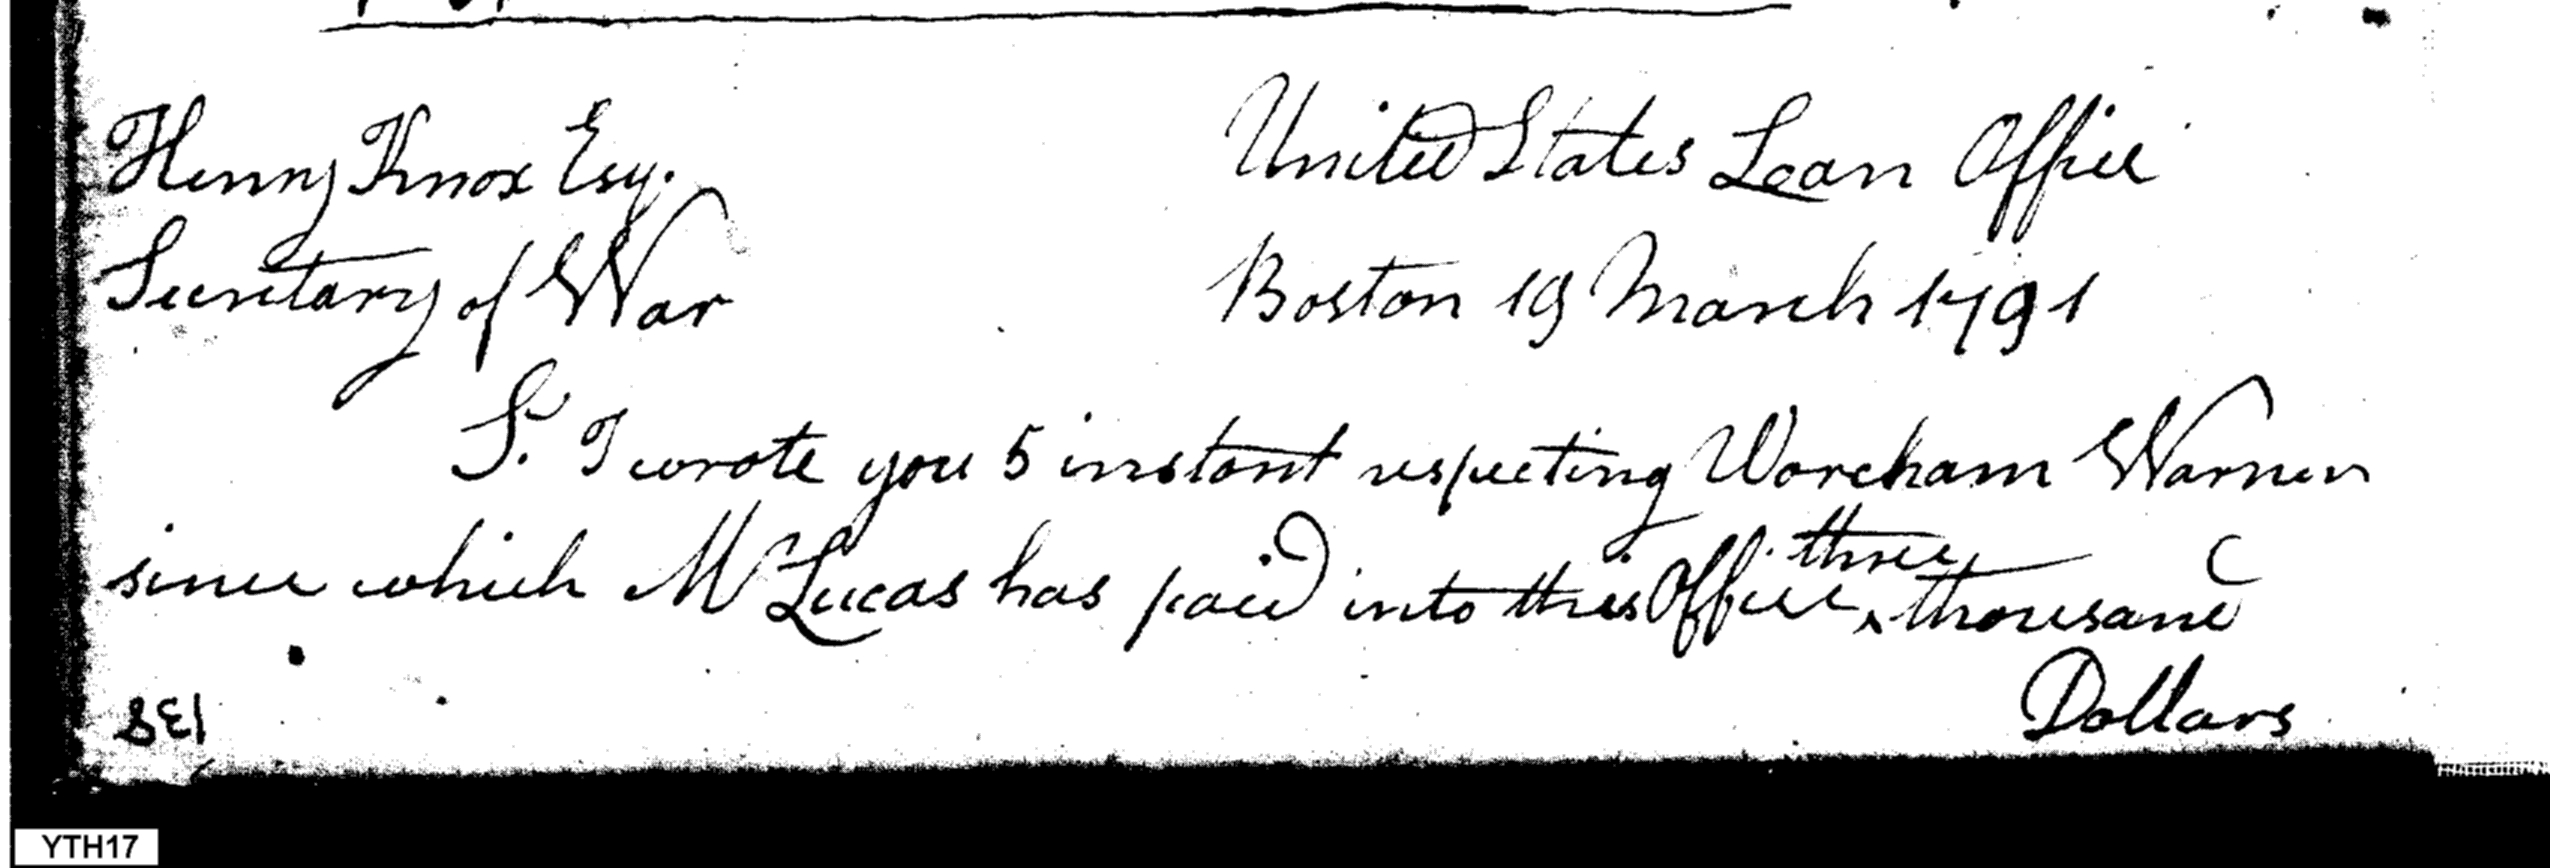 Henry Knox Esq. United States Loan Office
Secretary of War Boston 19 March 1791
S. I wrote you 5 instant respecting Woreham Warner
since which M Lucas has paid into this Office three thousand
Dollars
138
YTH17